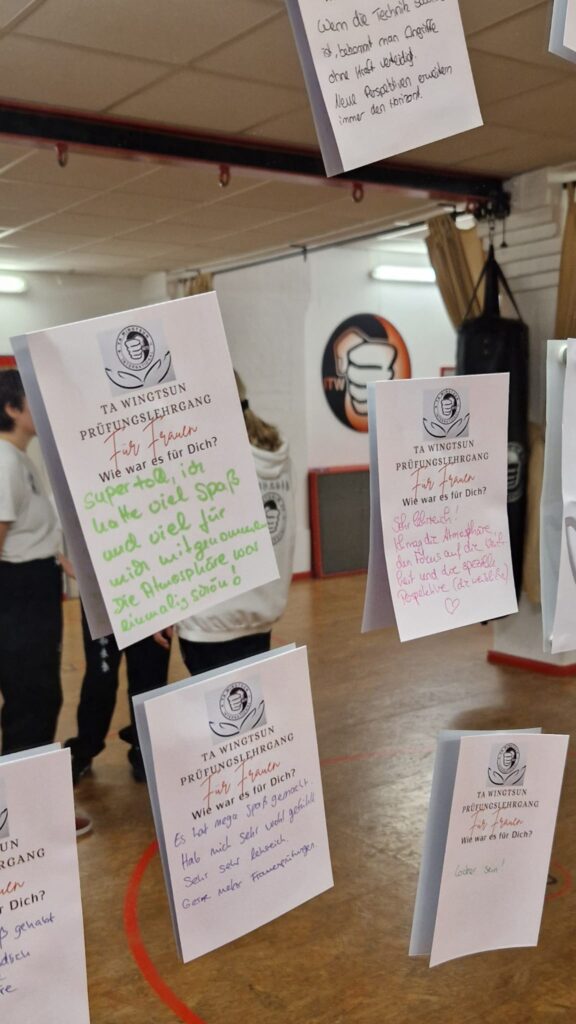 Wenn die Technik
ist, bekommt man Angriffe
ohne Kraft verteidigt.
Neue Perspektiven erweitern
immer den Horizont.
TA WINGTSUN
PRÜFUNGSLEHRGANG
Für Frauen
Wie war es für Dich?
Super toll, ich
hatte viel Spaß
und viel für
mich mitgenommen
Die Atmosphäre war
einmalig schön!
TA WINGTSUN
PRÜFUNGSLEHRGANG
Für Frauen
Wie war es für Dich?
Sehr lehrreich!
die Atmosphäre,
den Fokus auf die
und die spezielle
Perspektive (die weibliche)
TW
TA WINGTSUN
PRÜFUNGSLEHRGANG
Für Frauen
Wie war es für Dich?
Es hat mega Spaß gemacht.
Hab mich sehr wohl gefühlt
Sehr sehr lehrreich.
Gerne mehr Frauenprüfungen.
TA WINGTSUN
PRÜFUNGSLEHRGANG
Für Frauen
Wie war es für Dich?
sein!
GSUN
EHRGANG
auen
r Dich?
gehabt